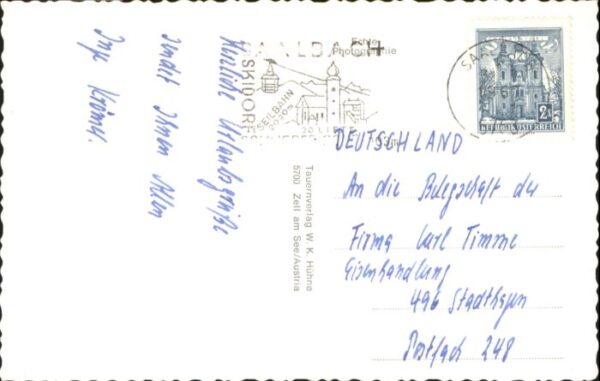 Herzliche Urlaubsgrüße
sendet Ihnen Allen
Inge Krömer.
Echte
Photographie
SAALBACH
SKIDORF
SEILBAHN
2030m
20 LIFTE
Tauernverlag W. K. Hühne
5700 Zell am See/Austria
SAA
2S
REPUBLIK ÖSTERREICH
DEUTSCHLAND
An die Belegschaft der
Firma Carl Timme
Eisenhandlung
496 Stadthagen
Postfach 248